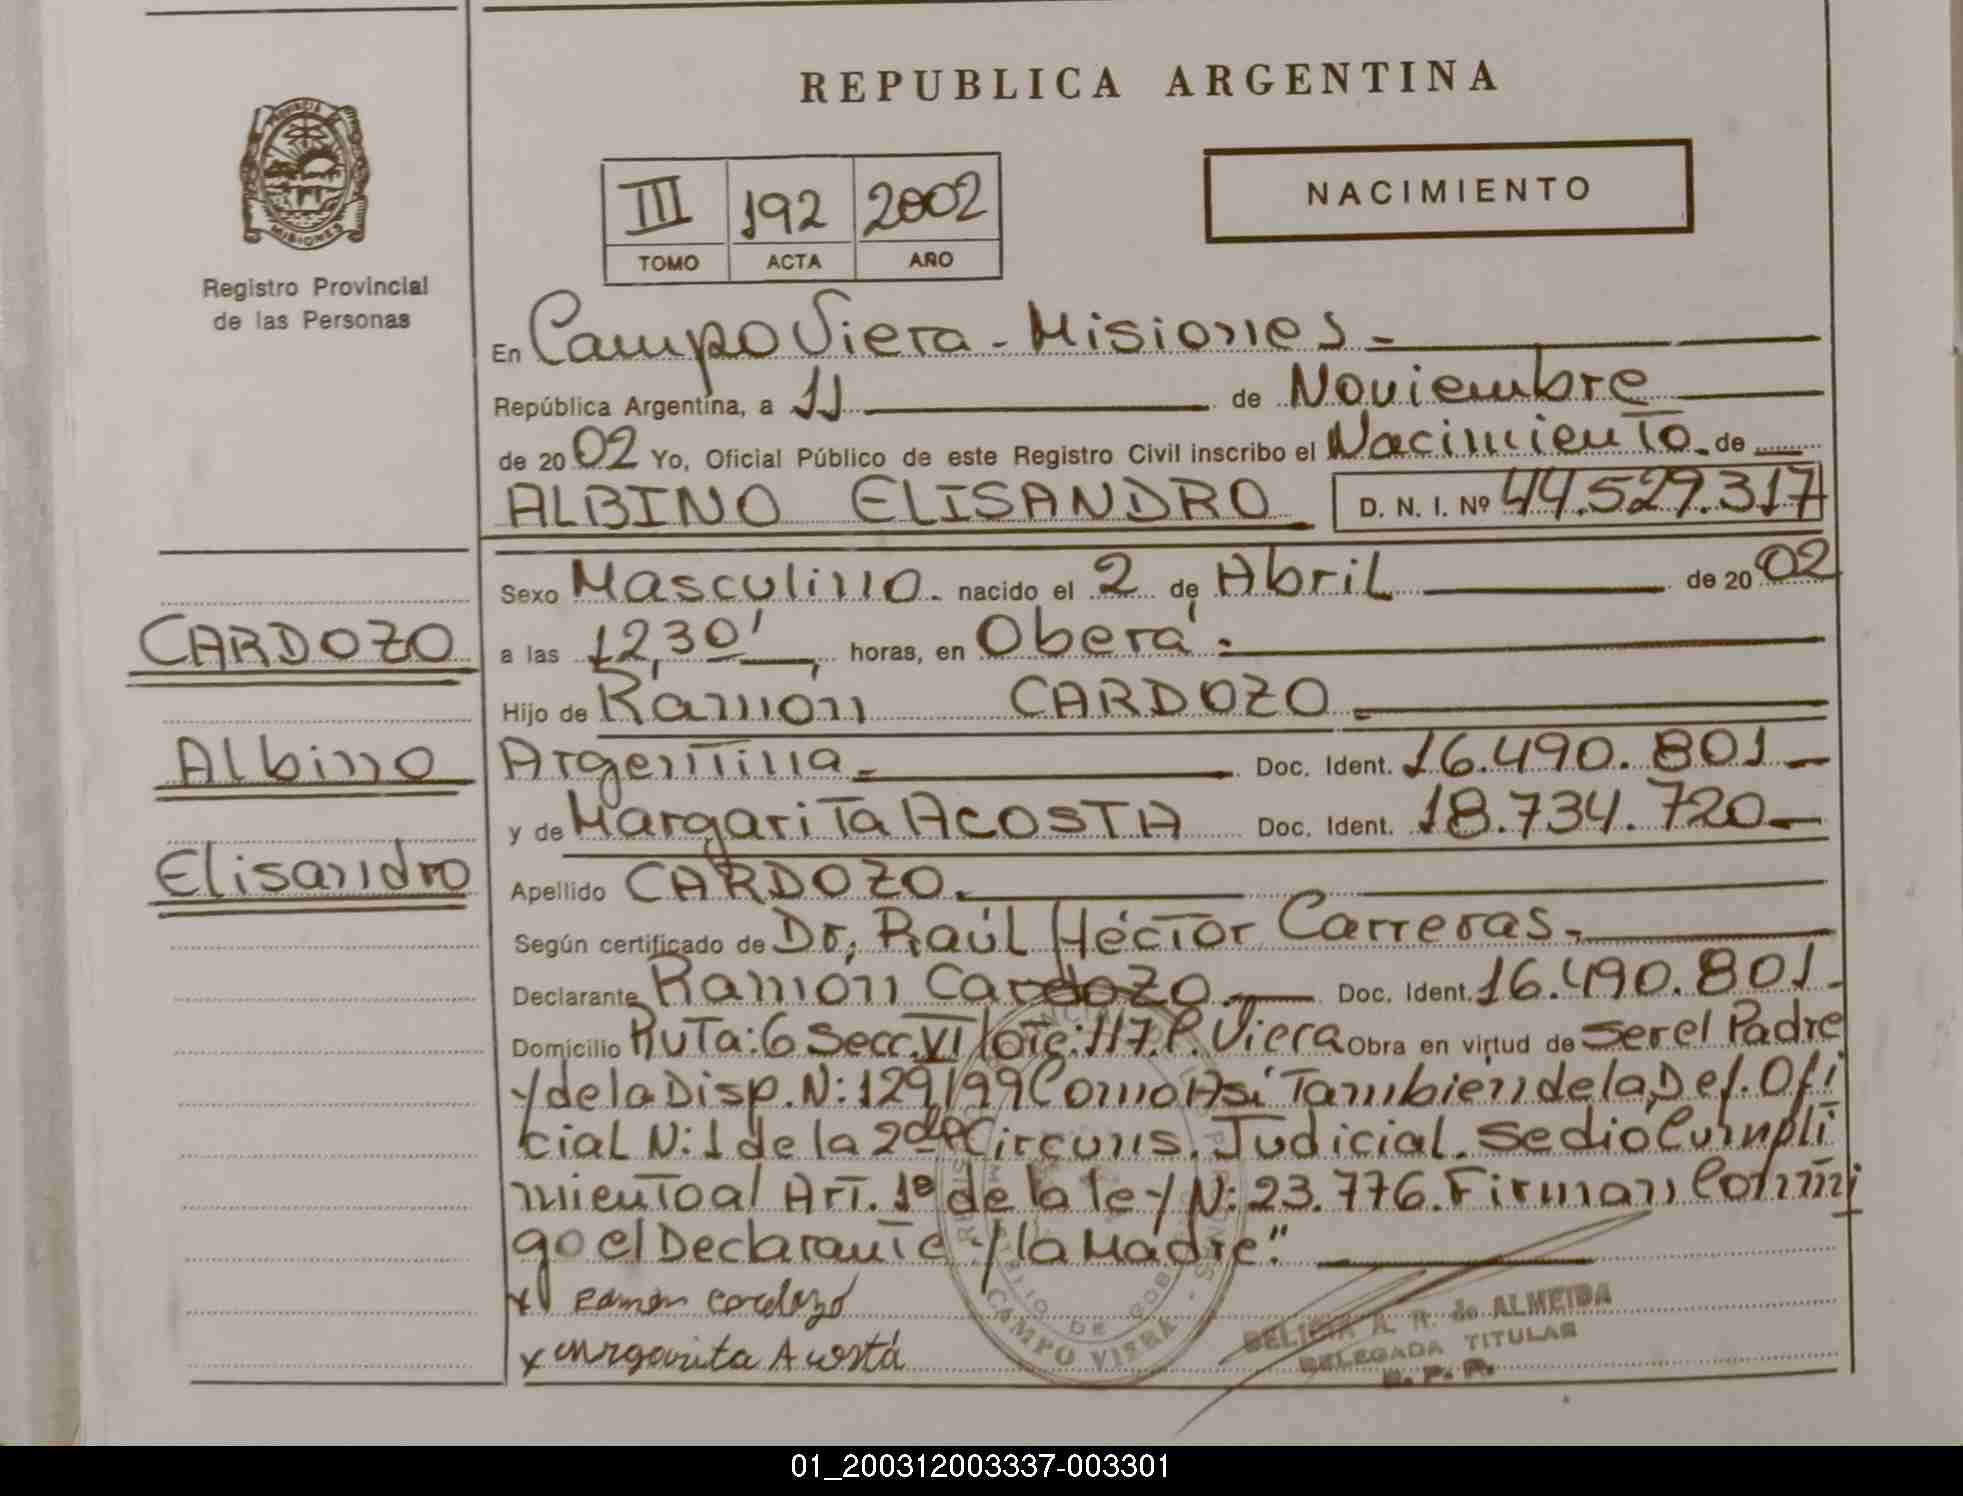 REPUBLICA ARGENTINA
PROVINCIA DE MISIONES
Registro Provincial
de las Personas
III 192 2002
TOMO ACTA AÑO
NACIMIENTO
En Campo Viera - Misiones -
República Argentina, a 11 de Noviembre
de 20 02 Yo, Oficial Público de este Registro Civil inscribo el Nacimiento de
ALBINO ELISANDRO D. N. I. Nº 44.529.317
Sexo Masculino. nacido el 2 de Abril de 20 02
a las 12,30' horas, en Oberá
Hijo de Ramón CARDOZO
Argentina Doc. Ident. 16.490.801
y de Margarita ACOSTA Doc. Ident. 18.734.720
Apellido CARDOZO.
Según certificado de Dr, Raúl Héctor Carreras.
Declarante Ramón Cardozo. Doc. Ident. 16.490.801
Domicilio Ruta: 6 Secc. VI lote: 117. C. Viera Obra en virtud de ser el Padre
y de la Disp. N: 129/99 Como Así También de la Def. Ofi
cial N: 1 de la 2da Circuns. Judicial. se dio Cumpli
miento al Art. 1º de la ley N: 23.776. Firman Conmi
go el Declarante y la Madre."
x Ramón Cardozo
x Margarita Acosta
CARDOZO
Albino
Elisandro
CAMPO VIERA
DELICIA A. R. de ALMEIDA
DELEGADA TITULAR
R. P. P.
01_200312003337-003301